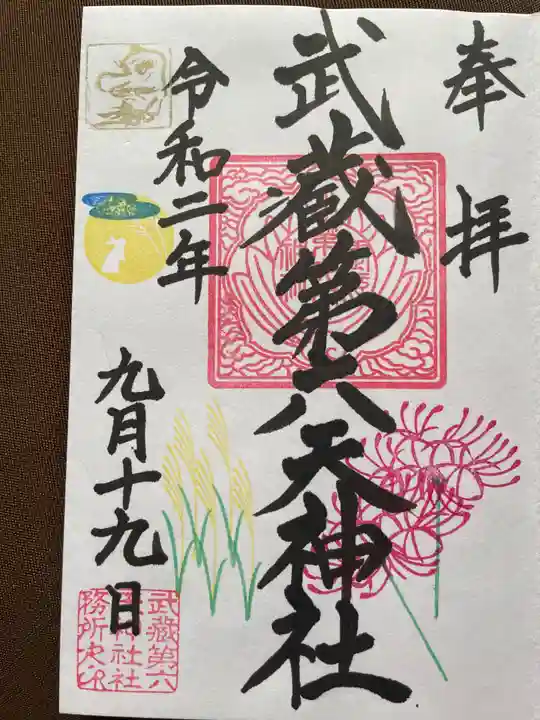 奉拝
武蔵第六天神社
令和二年
九月十九日
武蔵第六
天神社社
務所之印